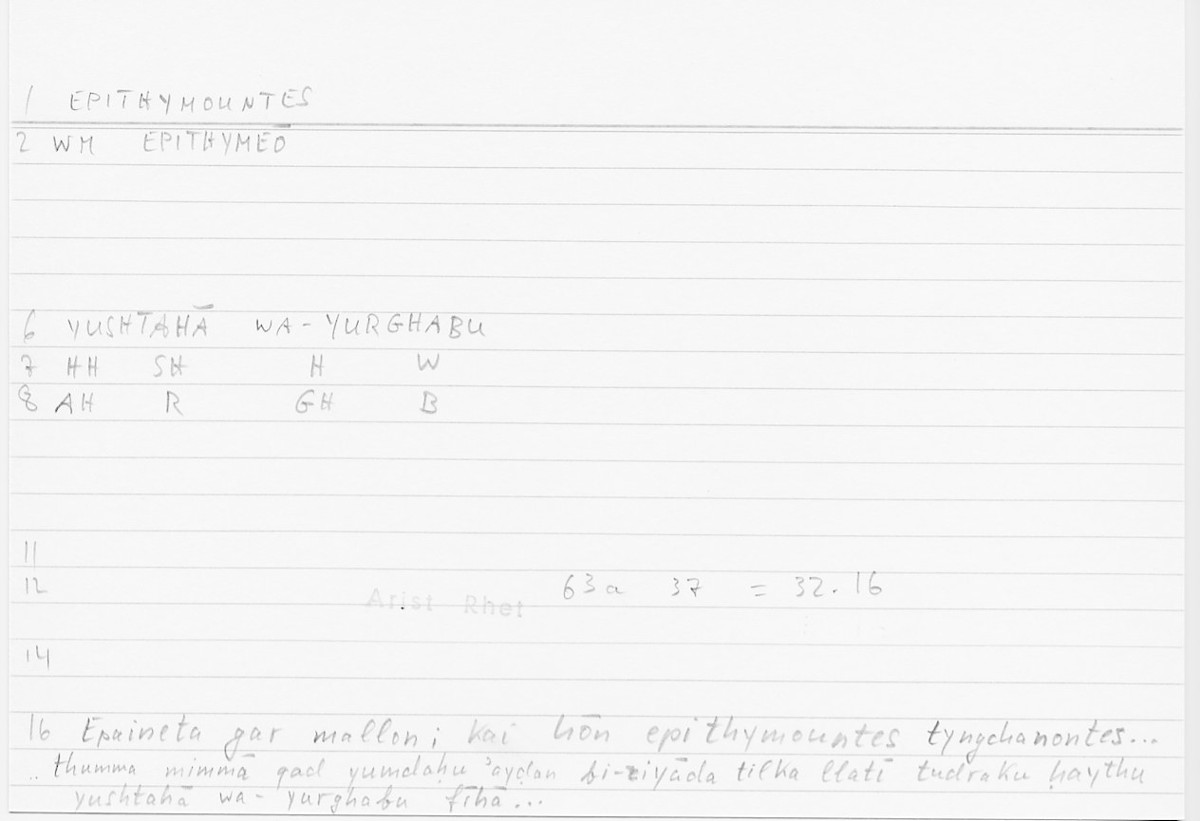 1 EPITHYMOUNTES
2 WM EPITHYMEŌ
6 YUSHTAHĀ WA-YURGHABU
7 HH SH H W
8 AH R GH B
11
12 Arist Rhet 63a 37 = 32.16
14
16 Epaineta gar mallon; kai hōn epithymountes tyngchanontes...
.. thumma mimmā qad yumdaḥu ʾayḍan bi-ziyāda tilka llatī tudraku ḥaythu
yushtahā wa-yurghabu fīhā...